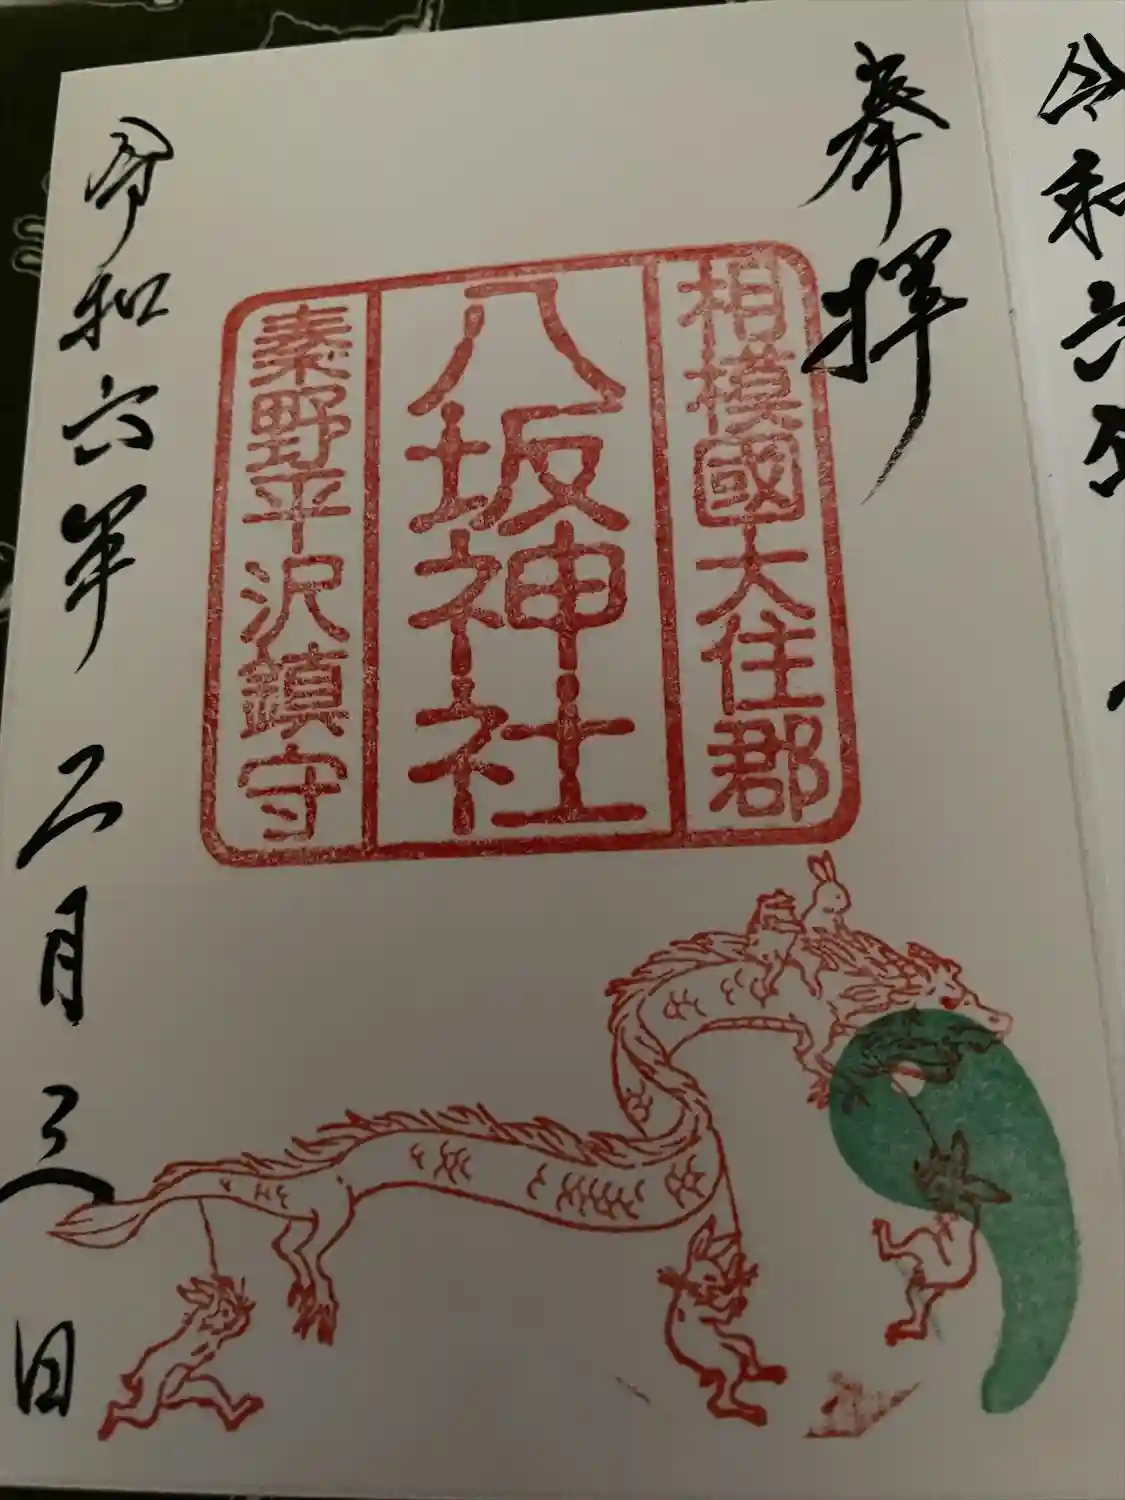 奉拝
相模國大住郡
八坂神社
秦野平沢鎮守
令和六年二月三日
令和六年